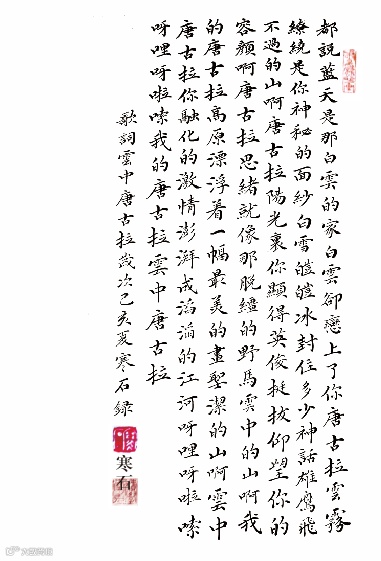 都說藍天是那白雲的家白雲卻戀上了你唐古拉雲霧
繚繞是你神秘的面紗白雪皚皚冰封住多少神話雄鷹飛
不過的山啊唐古拉陽光裏你顯得英俊挺拔仰望你的
容顏啊唐古拉思緒就像那脫繮的野馬雲中的山啊我
的唐古拉高原漂浮着一幅最美的畫聖潔的山啊雲中
唐古拉你融化的激情澎湃成滔滔的江河呀哩呀啦嗦
呀哩呀啦嗦我的唐古拉雲中唐古拉
歌詞雲中唐古拉歲次己亥夏寒石録
寒石